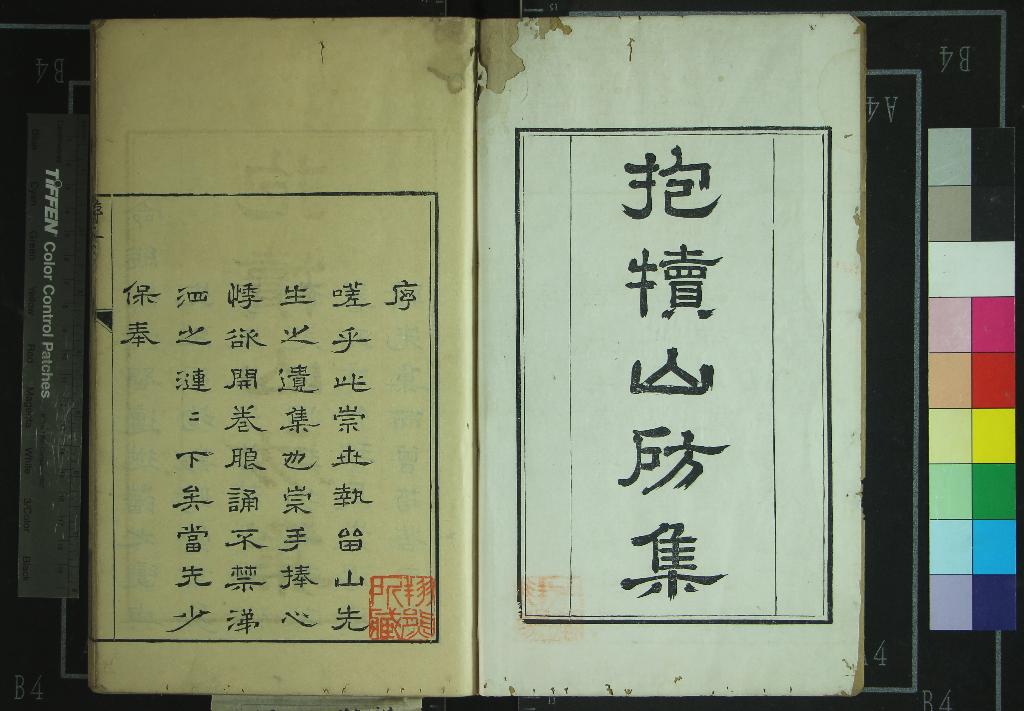 抱犢山房集
序
嗟乎此崇世執畱山先
生之遺集也崇手捧心
悸欲開卷朖誦不禁涕
泗之漣〻下矣當先少
保奉
所藏
TIFFEN Color Control Patches
Blue Cyan Green Yellow Red Magenta White 3/Color Black
B4
B4
A4
A4
B4
B4